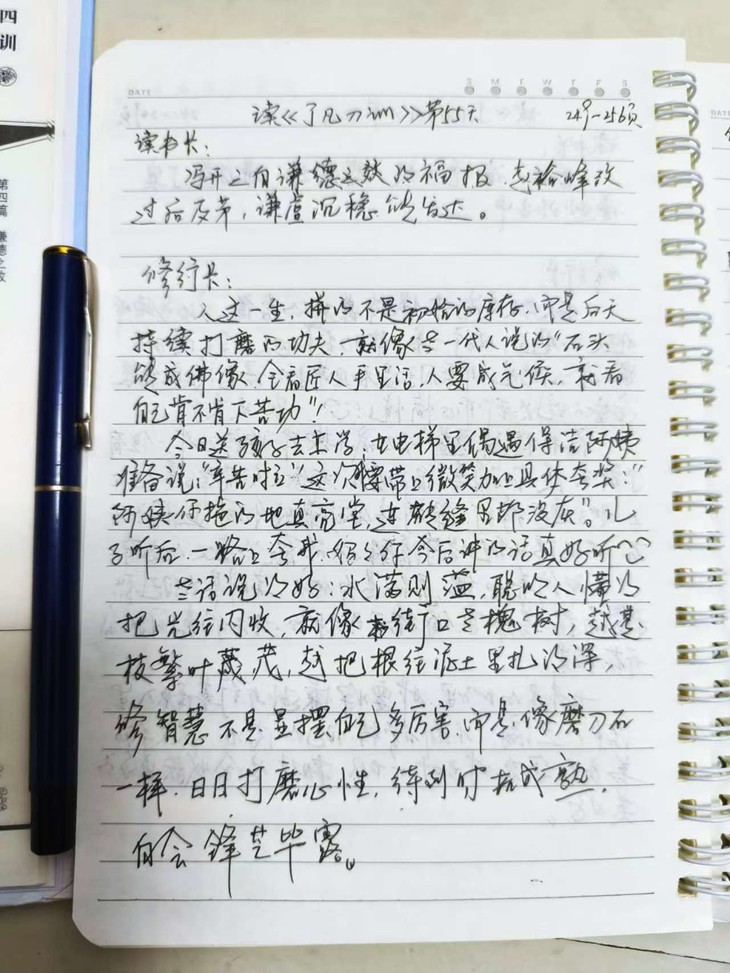 四
训
第四篇 谦德之效
DATE
S M T W T F S
DATE
读《了凡四训》第55天 249-256页
读书长:
冯开之自谦德之效的福报,赵裕峰改
过后及第,谦虚沉稳能发达。
修行长:
人这一生,拼的不是初始的库存,而是后天
持续打磨的功夫,就像老一代人说的"石头
能成佛像,全看匠人手里活,人要成气候,就看
自己肯不肯下苦功"!
今日送孩子去上学,在电梯里偶遇保洁阿姨
准备说:"辛苦啦"这次要带上微笑加上具体夸奖:"
阿姨你拖的地真亮堂,连砖缝里都没灰"。儿
子听后,一路上夸我,妈妈你今后讲的话真好听
老话说的好:水满则溢,聪明人懂得
把光往内收,就像街口老槐树,越是
枝繁叶茂,越把根往泥土里扎得深,
修智慧不是显摆自己多厉害,而是像磨刀石
一样,日日打磨心性,待到时机成熟,
自会锋芒毕露。